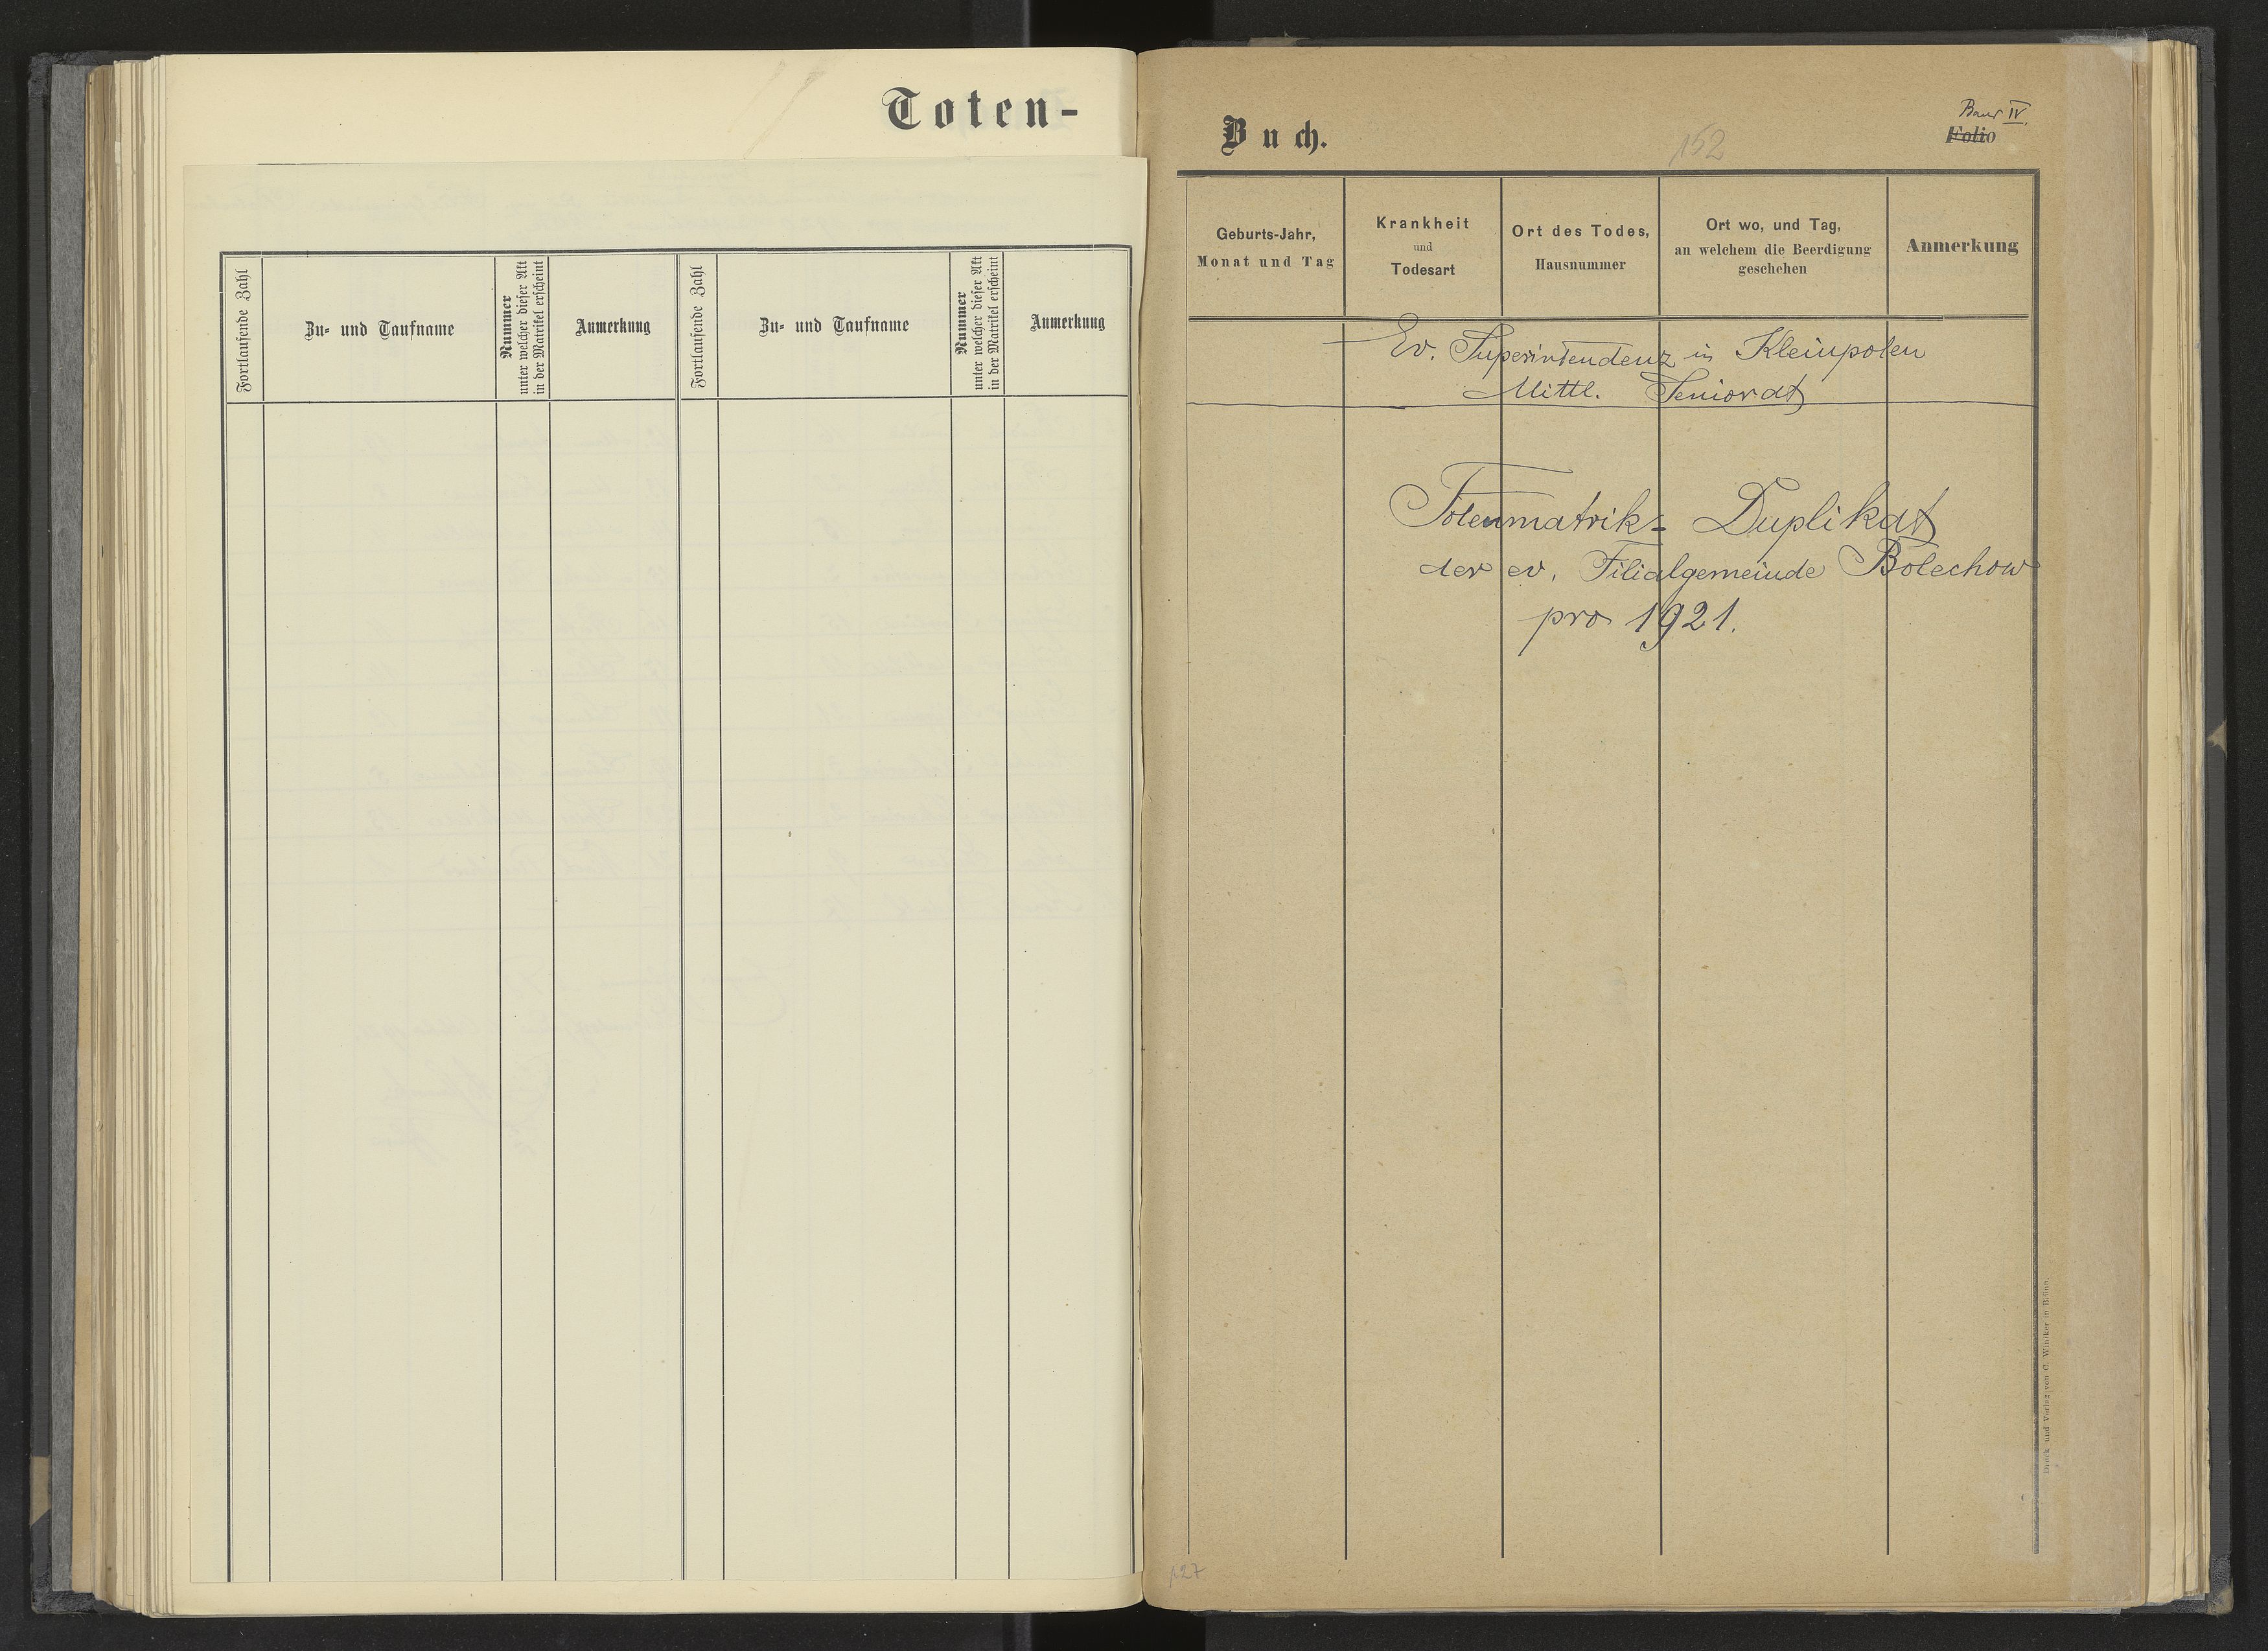 Toten-
Fortlaufende Zahl
Zu- und Taufname
Nummer
unter welcher dieser Akt
in der Matrikel erscheint
Anmerkung
Fortlaufende Zahl
Zu- und Taufname
Nummer
unter welcher dieser Akt
in der Matrikel erscheint
Anmerkung
Buch.
152
Band IV.
Folio
Geburts-Jahr,
Monat und Tag
Krankheit
und
Todesart
Ort des Todes,
Hausnummer
Ort wo, und Tag,
an welchem die Beerdigung
geschehen
Anmerkung
Ev. Superintendenz in Kleinpolen
Mittl. Seniorat
Totenmatrik- Duplikat
der ev. Filialgemeinde Bolechow
pro 1921.
Druck und Verlag von C. Winiker in Brünn.
127